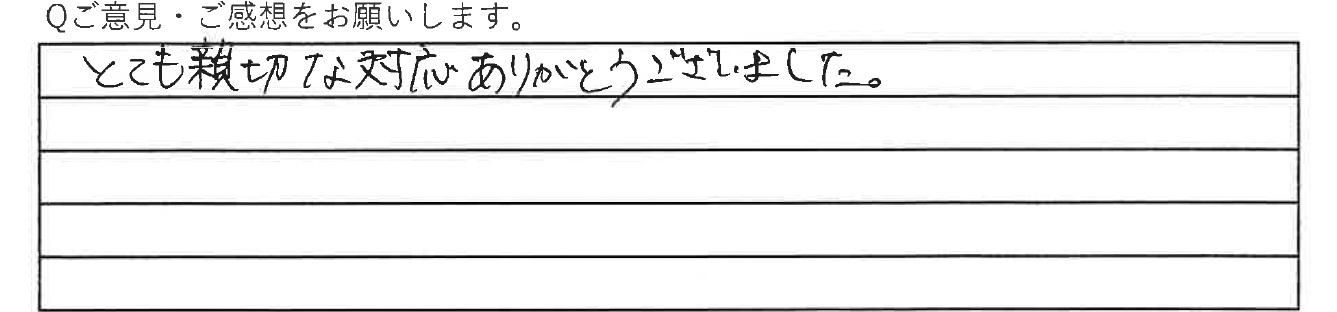 Qご意見・ご感想をお願いします。
とても親切な対応ありがとうございました。